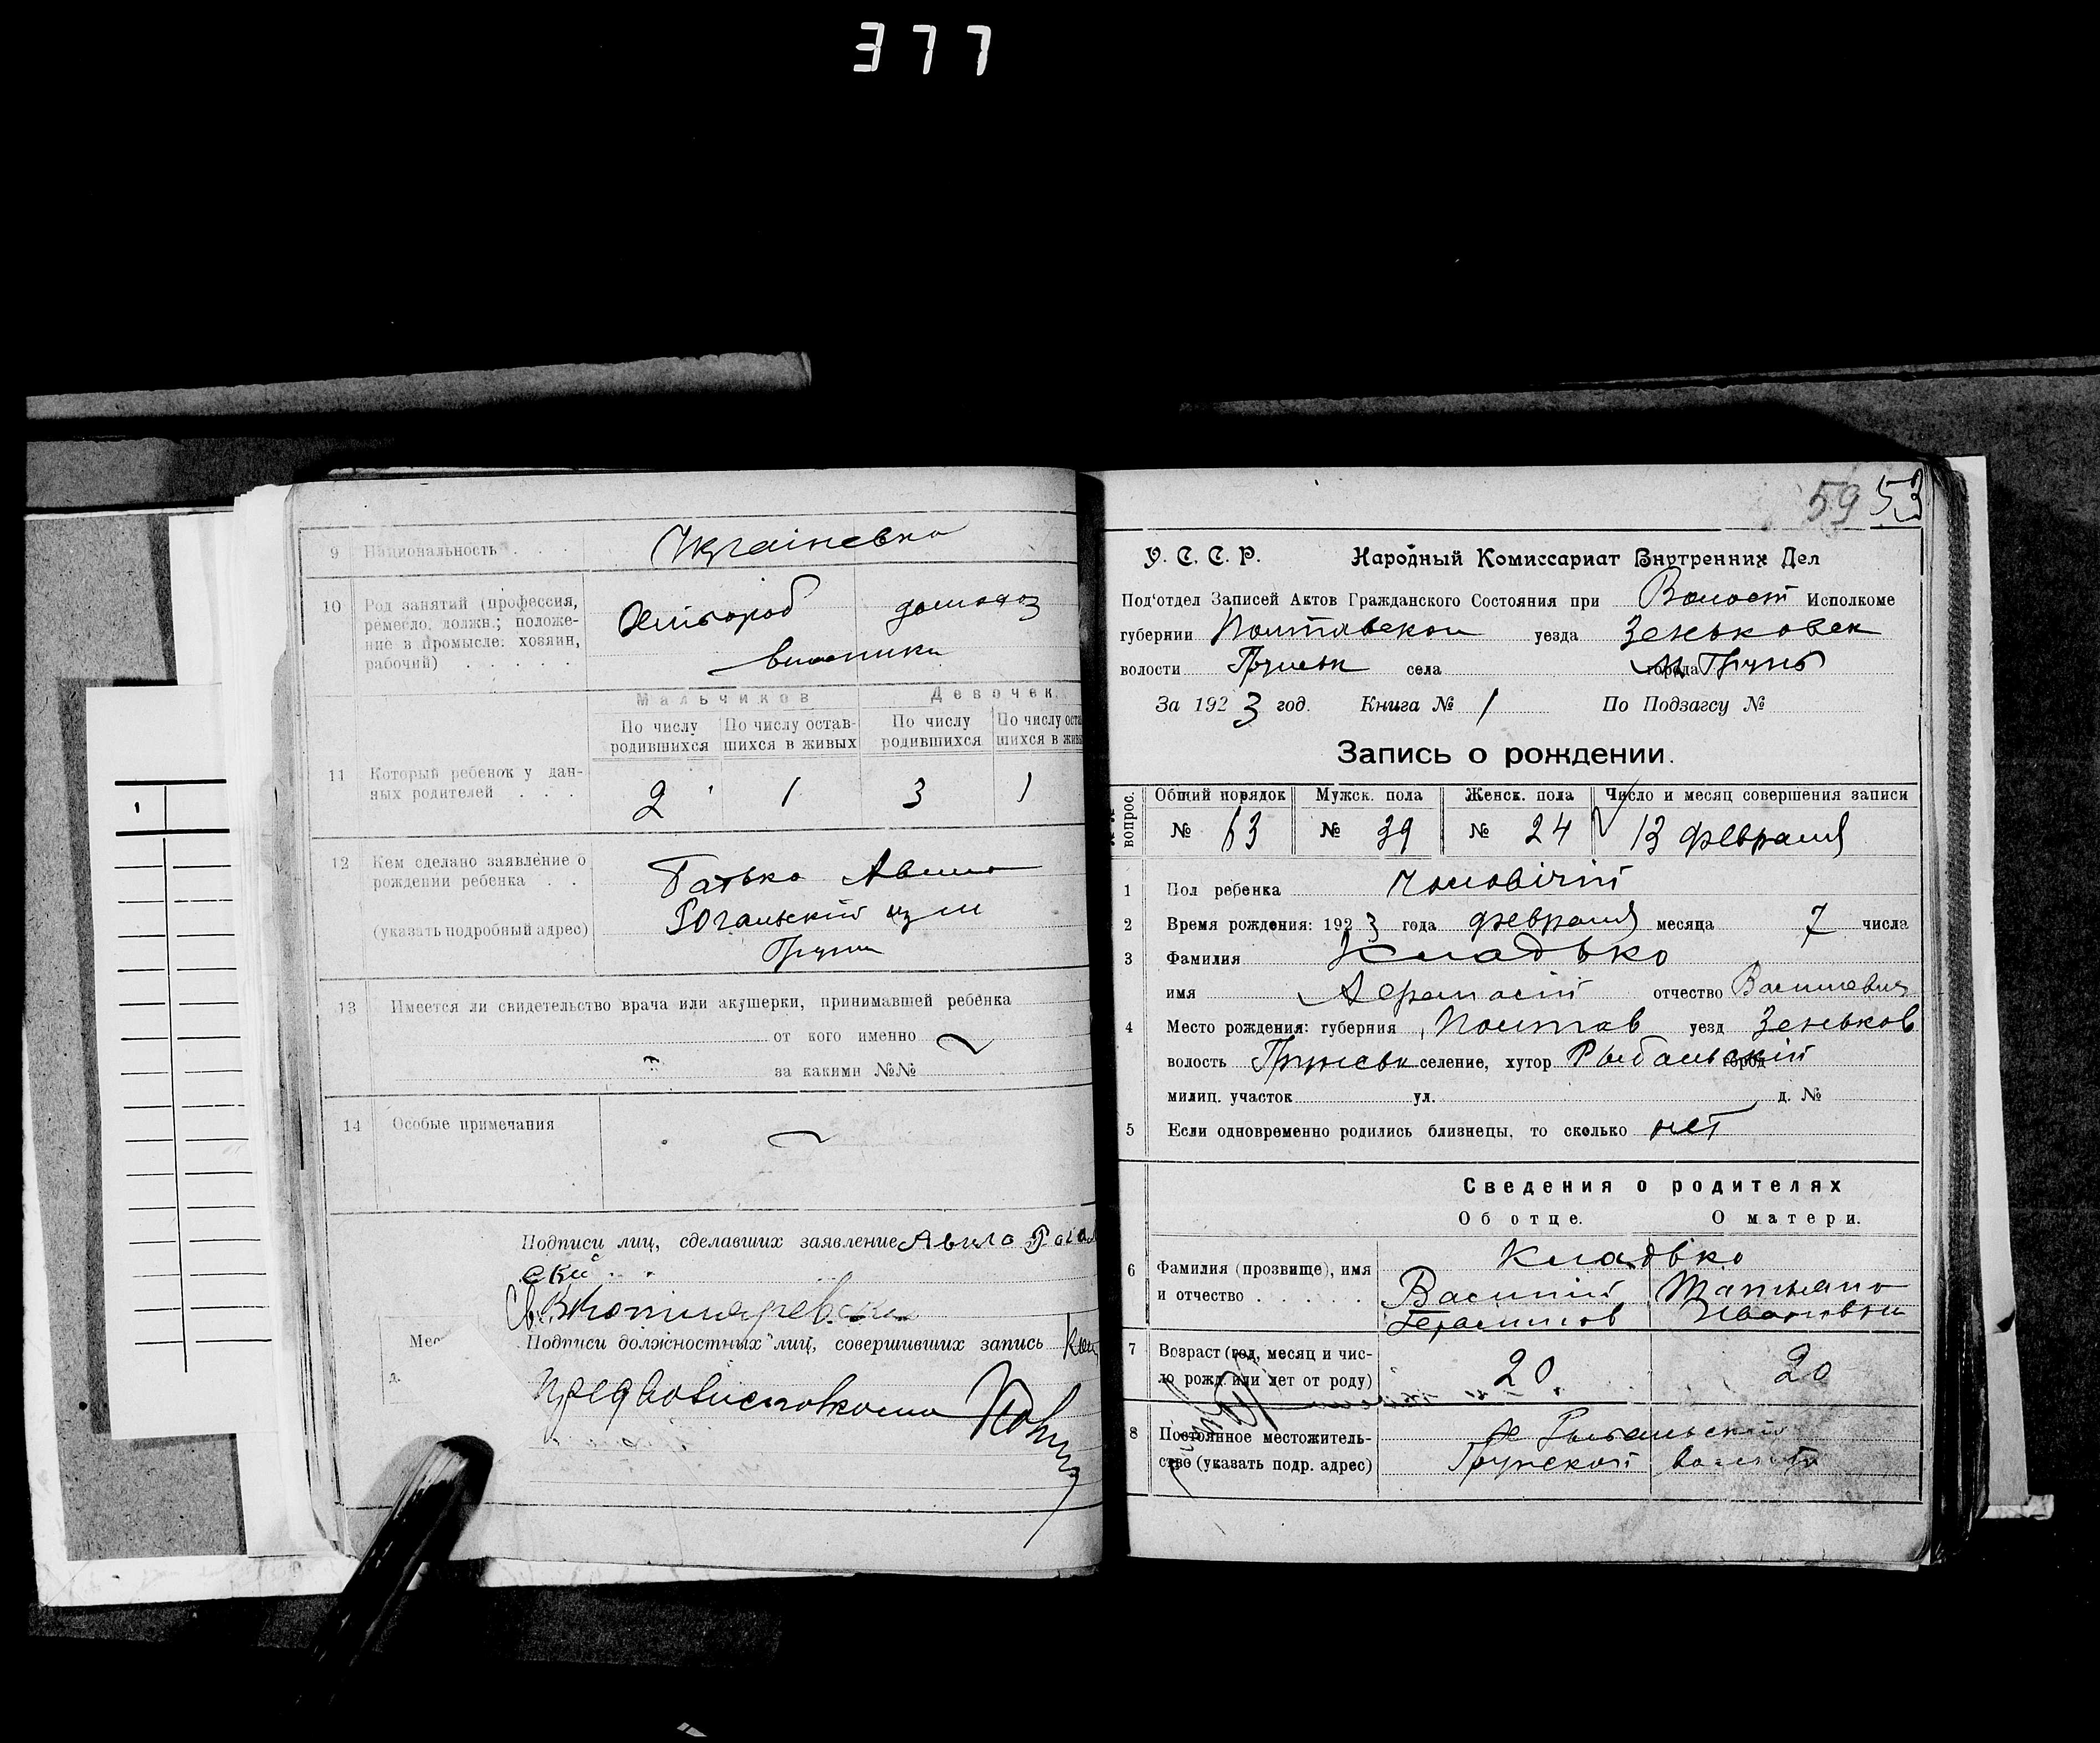 377
9 Национальность . . . Українська
10 Род занятий (профессия,
ремесло, должн.; положе-
ние в промысле: хозяин,
рабочий) . . . . .
Хлібороб домогоз
власники
Мальчиков Девочек.
По числу родившихся По числу остав-шихся в живых По числу родившихся По числу оста шихся в живы
11 Который ребенок у дан-
ных родителей . . . 2 1 3 1
12 Кем сделано заявление о
рождении ребенка . .
(указать подробный адрес)
Батько Авило
Рогальскій из м
Груни
13 Имеется ли свидетельство врача или акушерки, принимавшей ребенка
от кого именно
за какими №№
14 Особые примечания
Подписи лиц, сделавших заявление Авило Рогал
ский
Мес
Подписи должностных лиц, совершивших запись
д.
59 53
У. С. С. Р. Народный Комиссариат Внутренних Дел
Под'отдел Записей Актов Гражданского Состояния при Волост Исполкоме
губернии Полтавской уезда Зеньковск
волости Груньск села города м Грунь
За 1923 год. Книга № 1 По Подзагсу №
Запись о рождении.
вопрос. Общий порядок Мужск. пола Женск. пола Число и месяц совершения записи
№ 63 № 39 № 24 13 февраля
1 Пол ребенка Чоловічій
2 Время рождения: 1923 года февраля месяца 7 числа
3 Фамилия Кладько
имя Афанасій отчество Васильевич
4 Место рождения: губерния Полтав уезд Зеньков
волость Груньск селение, хутор Рыбальскій город
милиц. участок ул. д. №
5 Если одновременно родились близнецы, то сколько нет
Сведения о родителях
Об отце. О матери.
6 Фамилия (прозвище), имя
и отчество . . . . . .
Кладько
Василий Татьяна
Герасимов Ивановна
7 Возраст (год, месяц и чис-
ло рожд. или лет от роду) 20 20
8 Постоянное местожитель-
ство (указать подр. адрес)
х Рыбальский
Грунской волости